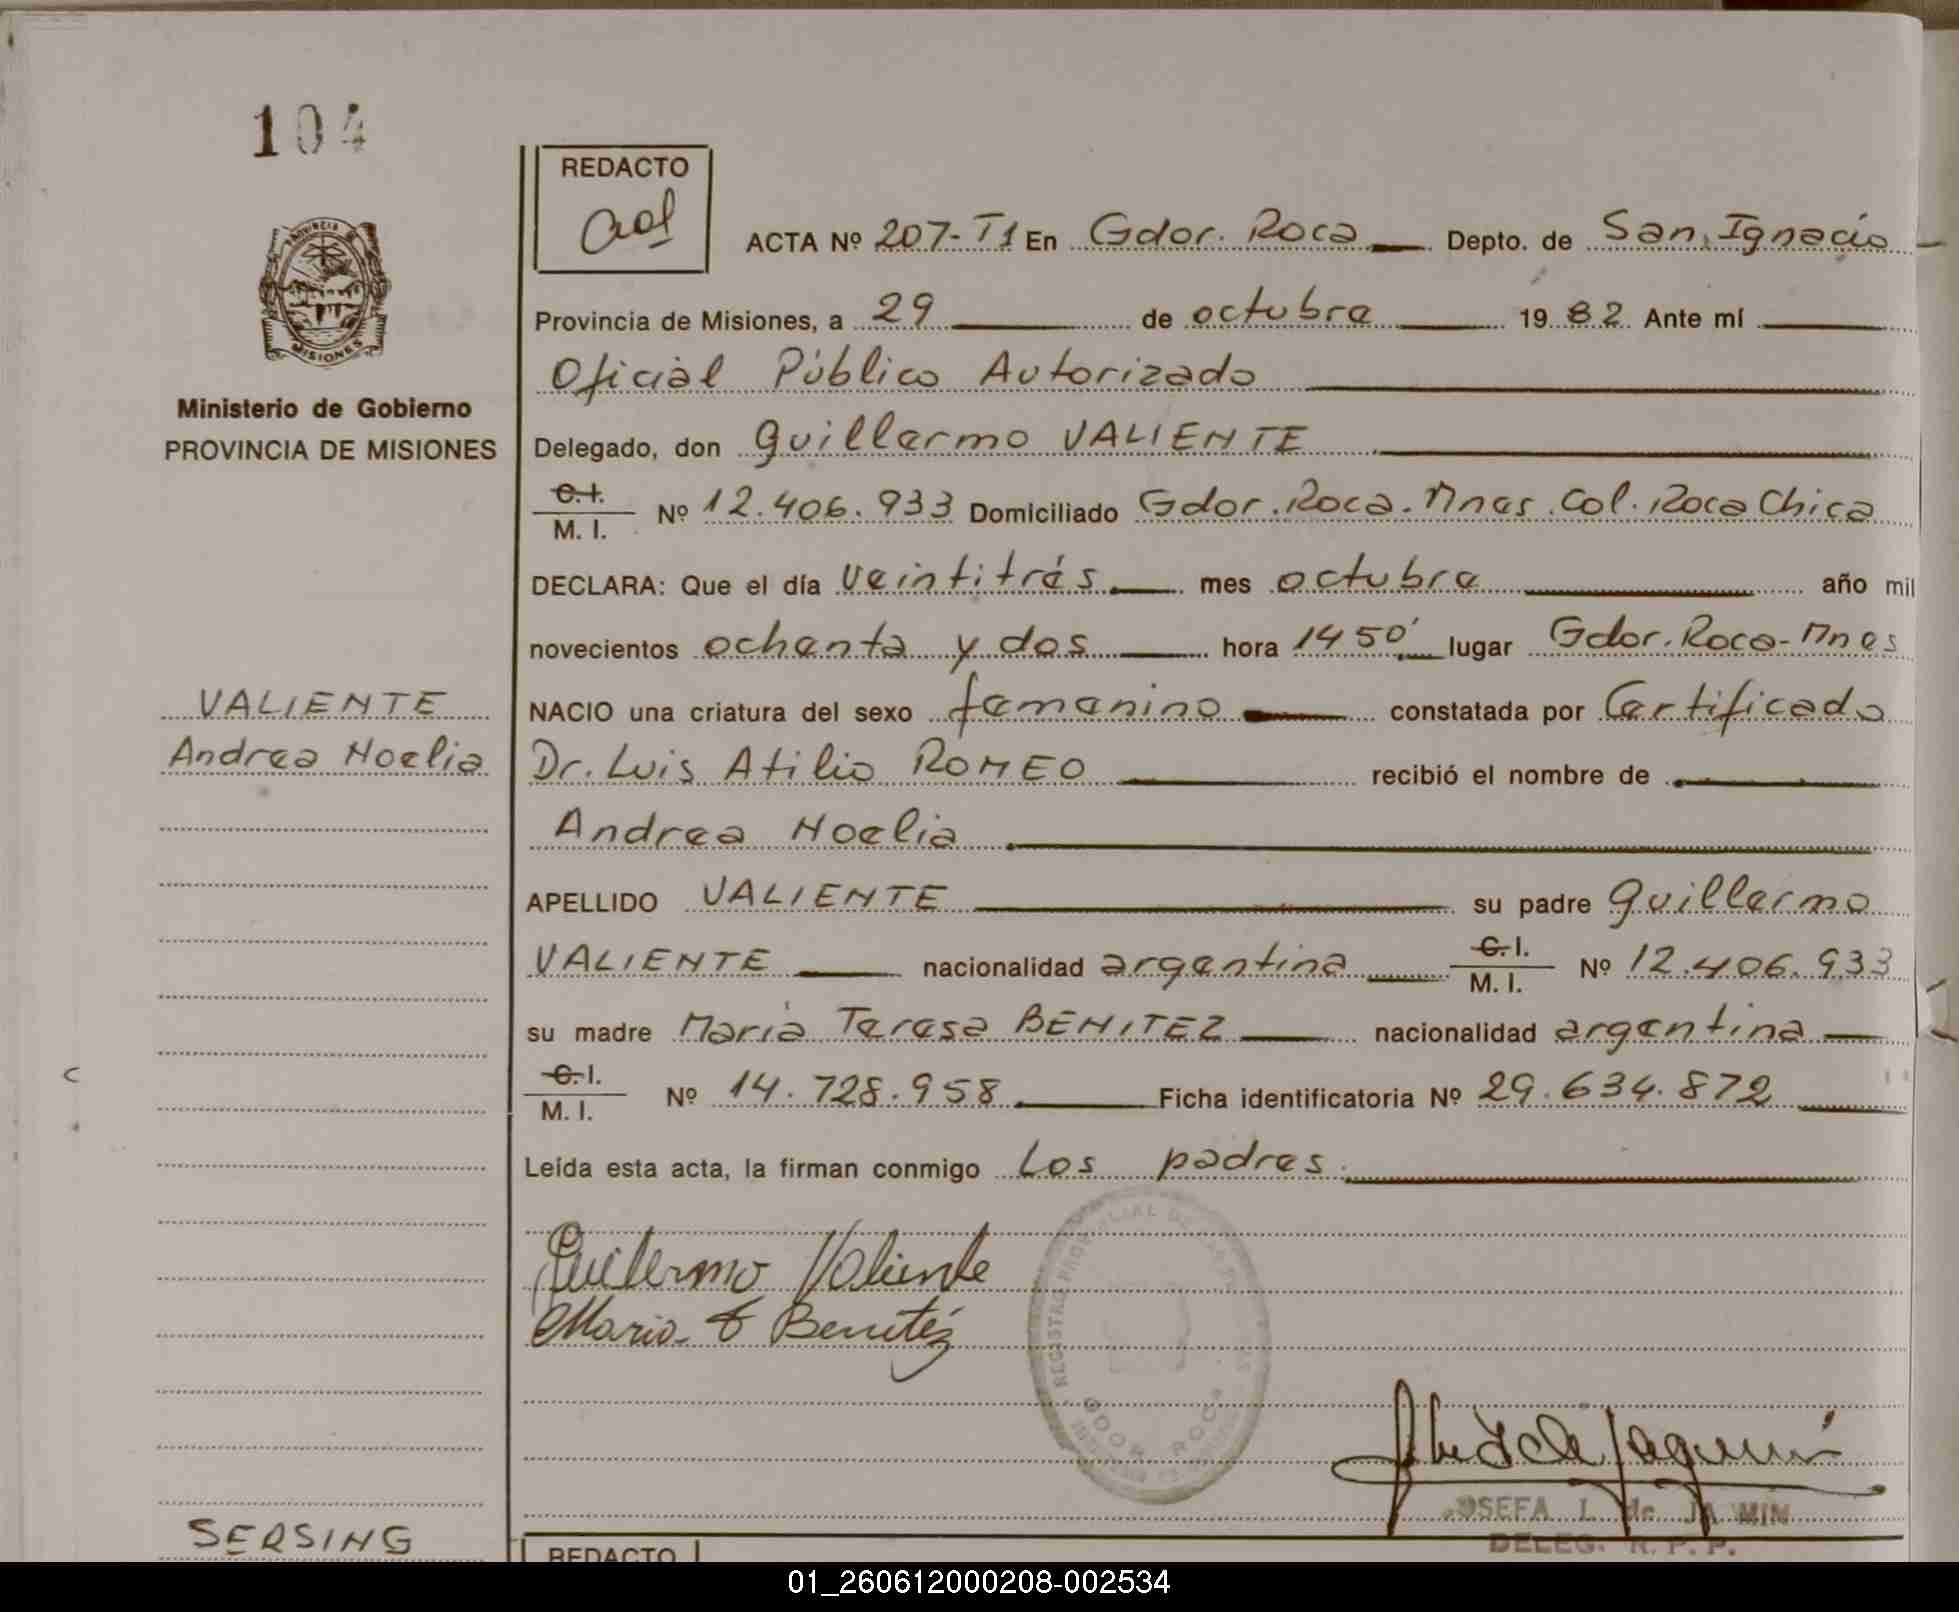 104
REDACTO
ACTA Nº 207-T1 En Gdor. Roca Depto. de San Ignacio
PROVINCIA DE MISIONES
Provincia de Misiones, a 29 de octubre 1982 Ante mí
Oficial Público Autorizado
Ministerio de Gobierno
PROVINCIA DE MISIONES
Delegado, don Guillermo VALIENTE
C.I.
M. I. Nº 12.406.933 Domiciliado Gdor. Roca. Mnes. Col. Roca Chica
DECLARA: Que el día veintitrés mes octubre año mil
novecientos ochenta y dos hora 14 50' lugar Gdor. Roca-Mnes
VALIENTE
Andrea Noelia
NACIO una criatura del sexo femenino constatada por Certificado
Dr. Luis Atilio ROMEO recibió el nombre de
Andrea Noelia
APELLIDO VALIENTE su padre Guillermo
VALIENTE nacionalidad argentina C.I.
M. I. Nº 12.406.933
su madre María Teresa BENITEZ nacionalidad argentina
C.I.
M. I. Nº 14.728.958 Ficha identificatoria Nº 29.634.872
Leída esta acta, la firman conmigo los padres.
Guillermo Valiente
Maria T Benitéz
REGISTRO PROVINCIAL DE LAS
GDOR. ROCA
JOSEFA I. de JA MIN
DELEG. R. P. P.
SERSING
REDACTO
01_260612000208-002534